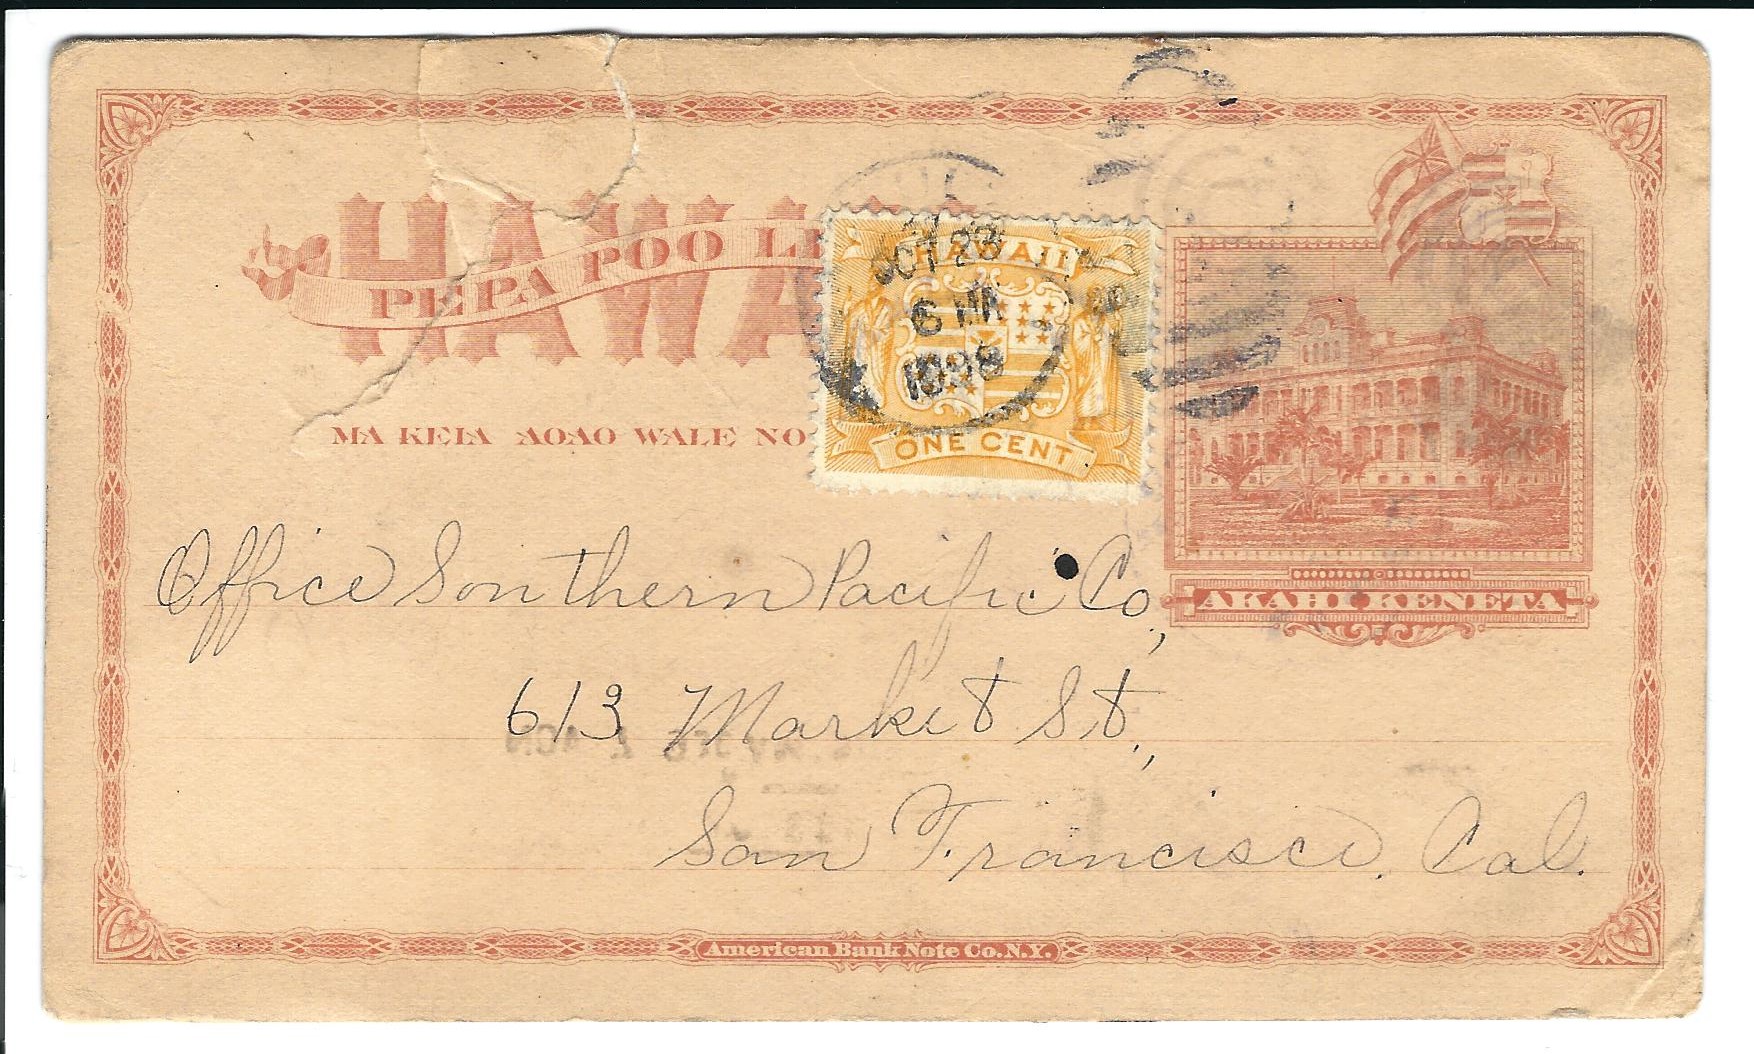 HAWA
PEPA POO LE
MA KEIA AOAO WALE NO
HAWAII
ONE CENT
OCT 23
6 AM
1898
AKAHI KENETA
Office Southern Pacific Co.,
613 Market St.,
San Francisco, Cal.
American Bank Note Co. N.Y.